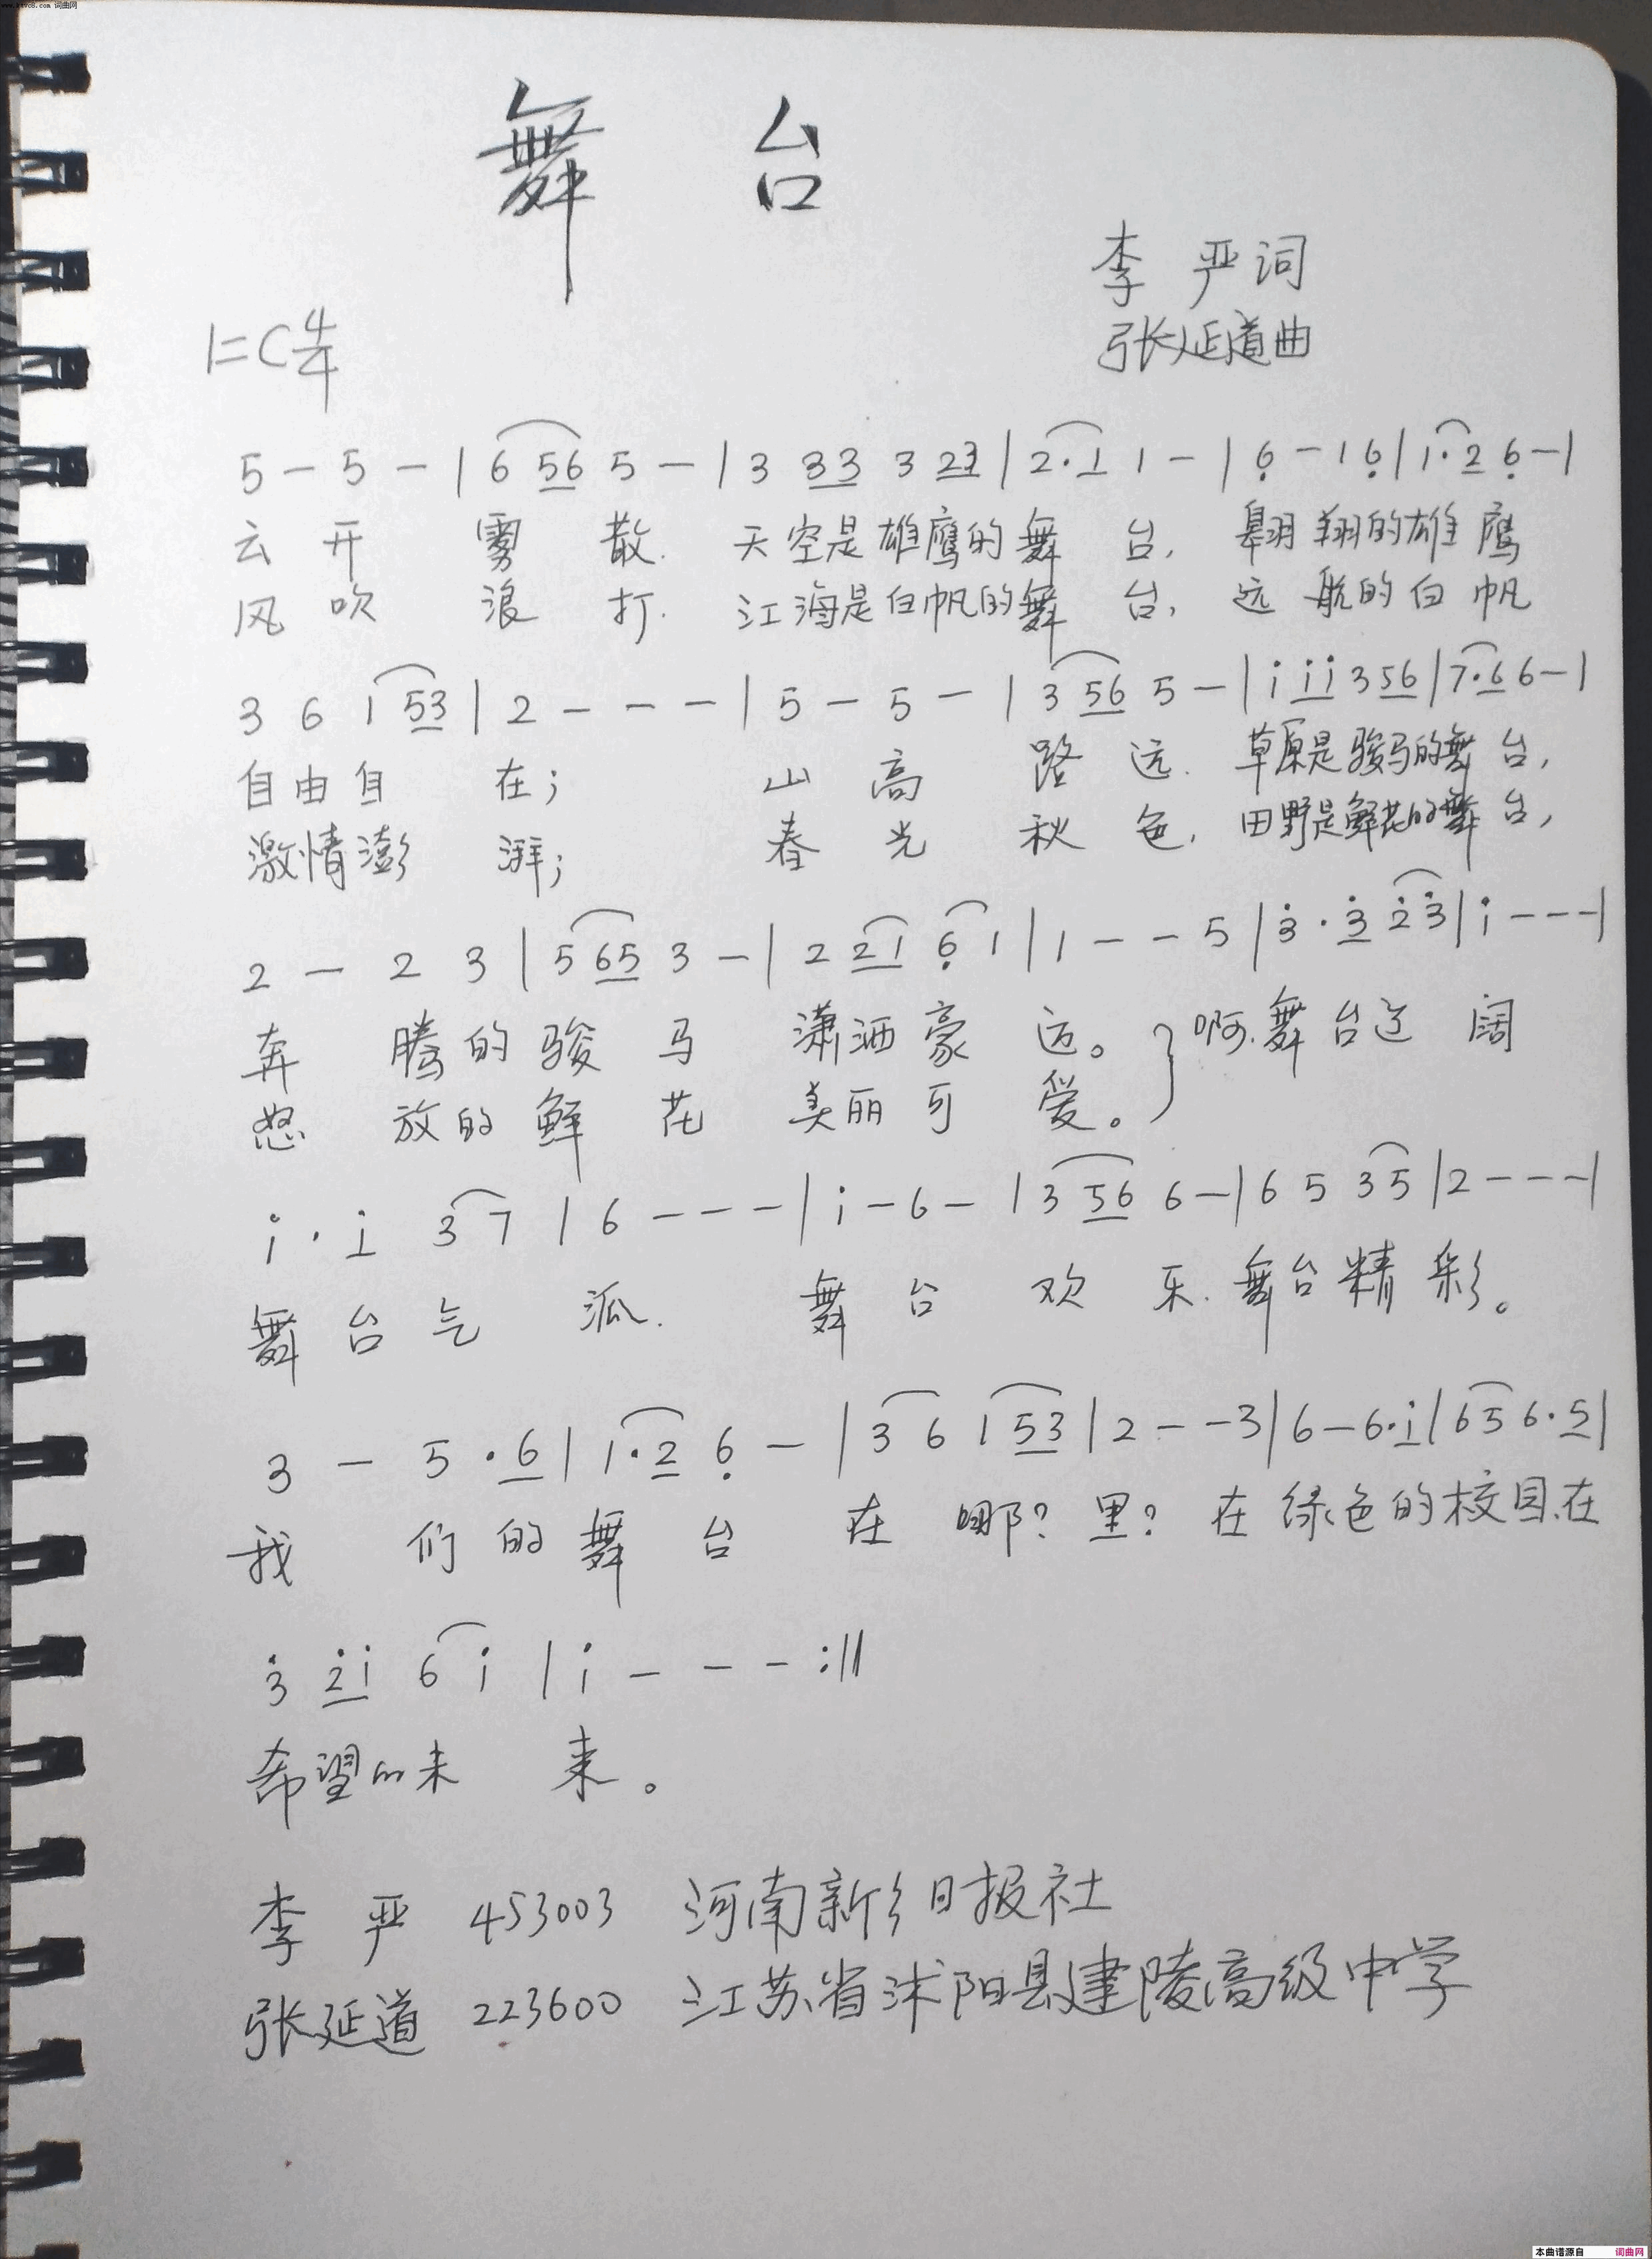 www.ktvc8.com 词曲网
舞 台
李 严词
1=C 4/4
张延道曲
5 - 5 - | 6 56 5 - | 3 33 3 23 | 2·1 1 - | 6̣ - 1 6̣ | 1·2 6̣ - |
云 开 雾 散. 天空是雄鹰的舞 台, 翱翔的雄 鹰
风 吹 浪 打. 江海是白帆的舞 台, 远 航的白 帆
3 6 1 53 | 2 - - - | 5 - 5 - | 3 56 5 - | i ii 3 56 | 7·6 6 - |
自由自 在; 山 高 路 远. 草原是骏马的舞 台,
激情澎 湃; 春 光 秋 色, 田野是鲜花的舞 台,
2 - 2 3 | 5 65 3 - | 2 21 6̣ 1 | 1 - - 5 | 3̇ · 3̇ 2̇ 3̇ | i - - - |
奔 腾的骏 马 潇洒豪 迈。} 啊.舞 台辽 阔
怒 放的鲜 花 美丽可 爱。
i · i 3 7 | 6 - - - | i - 6 - | 3 56 6 - | 6 5 3 5 | 2 - - - |
舞 台 气 派. 舞 台 欢 乐. 舞台精 彩。
3 - 5 · 6 | 1·2 6̣ - | 3 6 1 53 | 2 - - 3 | 6 - 6·i | 6 5 6·5 |
我 们 的 舞 台 在 哪? 里? 在 绿色的校园.在
3̇ 2̇i 6 i | i - - - :||
希望的未 来。
李 严 453003 河南新乡日报社
张延道 223600 江苏省沭阳县建陵高级中学
本曲谱源自 词曲网